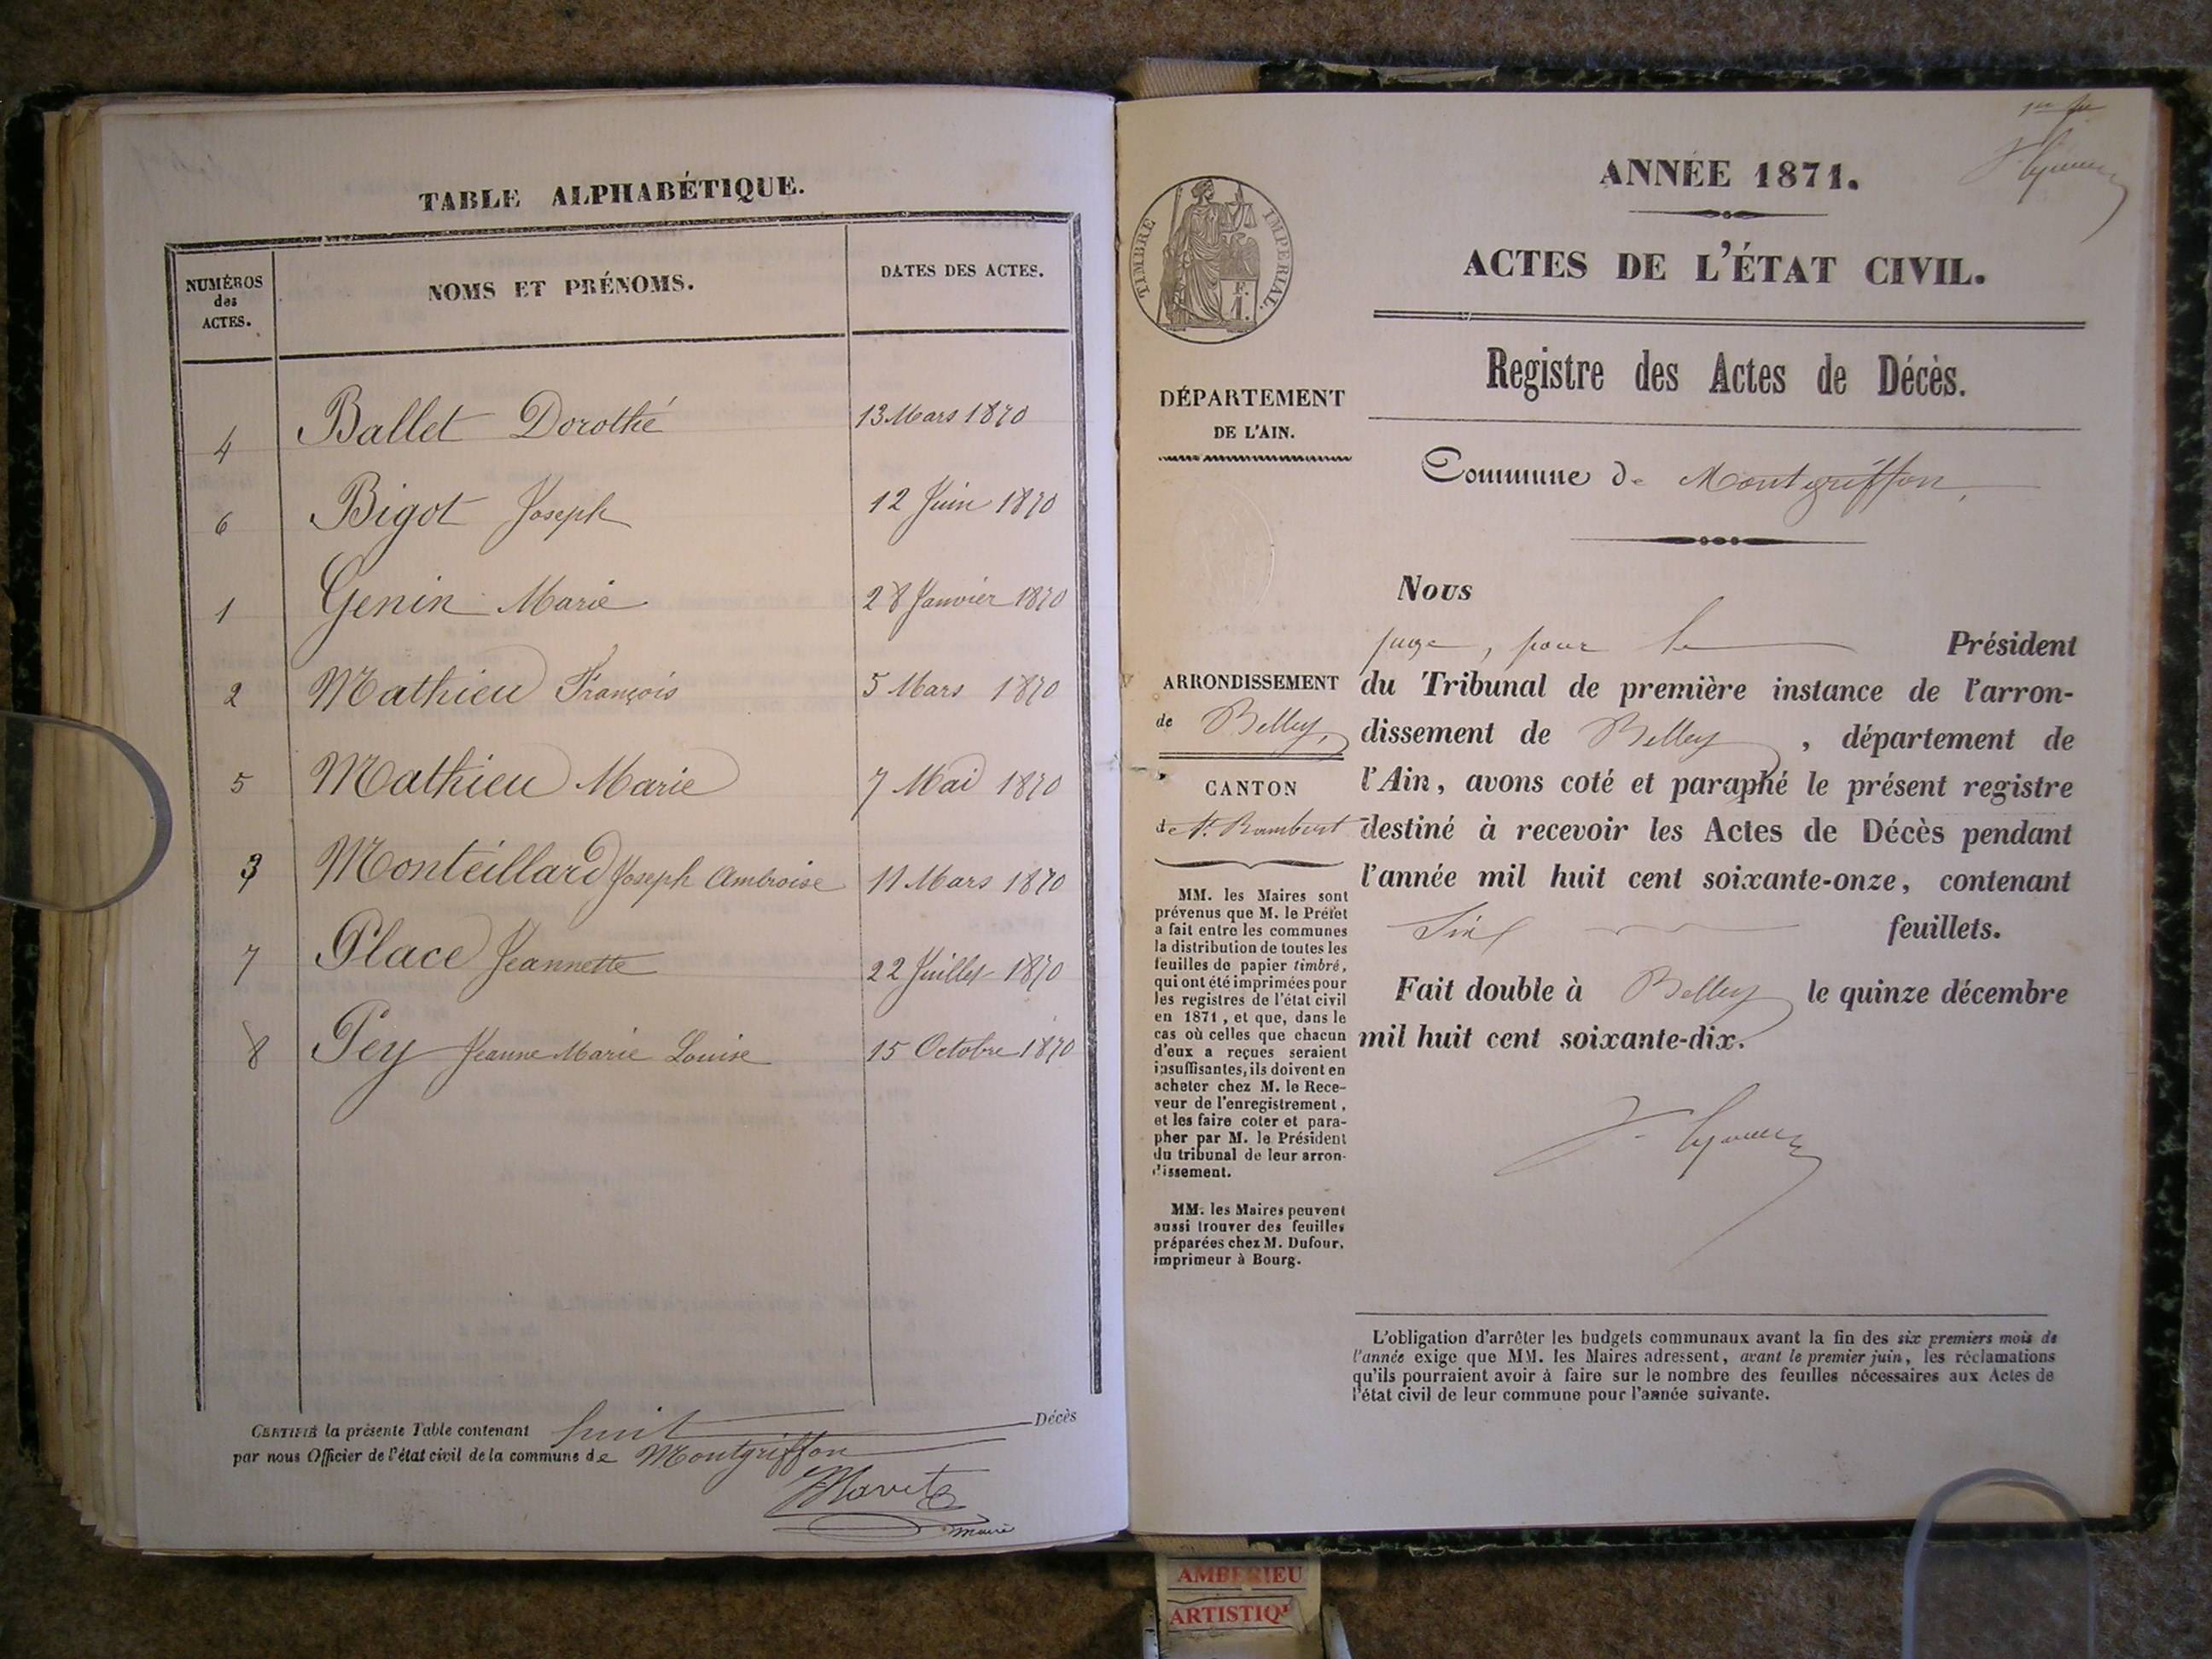 TABLE ALPHABÉTIQUE.
NUMÉROS des ACTES. NOMS ET PRÉNOMS. DATES DES ACTES.
4 Ballet Dorothé 13 Mars 1870
6 Bigot Joseph 12 Juin 1870
1 Genin Marie 28 Janvier 1870
2 Mathieu François 5 Mars 1870
5 Mathieu Marie 7 Mai 1870
3 Monteillard Joseph Ambroise 11 Mars 1870
7 Place Jeannette 22 Juillet 1870
8 Pey Jeanne Marie Louise 15 Octobre 1870
CERTIFIÉ la présente Table contenant huit Décès
par nous Officier de l'état civil de la commune de Montgriffon
maire
TIMBRE IMPÉRIAL.
F.
1.
DÉPARTEMENT
DE L'AIN.
ARRONDISSEMENT
de Belley,
CANTON
de St. Rambert
MM. les Maires sont
prévenus que M. le Préfet
a fait entre les communes
la distribution de toutes les
feuilles de papier timbré,
qui ont été imprimées pour
les registres de l'état civil
en 1871, et que, dans le
cas où celles que chacun
d'eux a reçues seraient
insuffisantes, ils doivent en
acheter chez M. le Rece-
veur de l'enregistrement,
et les faire coter et para-
pher par M. le Président
du tribunal de leur arron-
dissement.
MM. les Maires peuvent
aussi trouver des feuilles
préparées chez M. Dufour,
imprimeur à Bourg.
ANNÉE 1871.
ACTES DE L'ÉTAT CIVIL.
Registre des Actes de Décès.
Commune de Montgriffon,
Nous
juge, pour le Président
du Tribunal de première instance de l'arron-
dissement de Belley, département de
l'Ain, avons coté et paraphé le présent registre
destiné à recevoir les Actes de Décès pendant
l'année mil huit cent soixante-onze, contenant
Six feuillets.
Fait double à Belley le quinze décembre
mil huit cent soixante-dix.
L'obligation d'arrêter les budgets communaux avant la fin des six premiers mois de
l'année exige que MM. les Maires adressent, avant le premier juin, les réclamations
qu'ils pourraient avoir à faire sur le nombre des feuilles nécessaires aux Actes de
l'état civil de leur commune pour l'année suivante.
AMBERIEU
ARTISTIQ